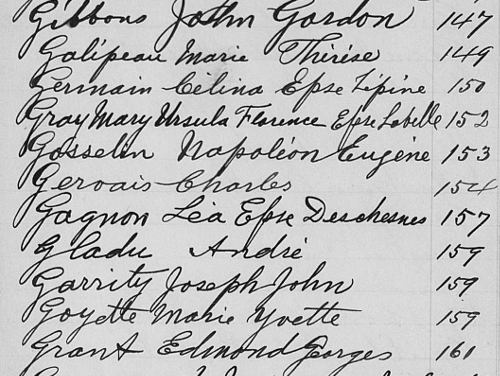 Gibbons John Gordon 147
Galipeau Marie Thérèse 149
Germain Célina Epse Lépine 150
Gray Mary Ursula Florence Epse Labelle 152
Gosselin Napoléon Eugène 153
Gervais Charles 154
Gagnon Léa Epse Deschesnes 157
Gladu André 159
Garrity Joseph John 159
Goyette Marie Yvette 159
Grant Edmond Georges 160